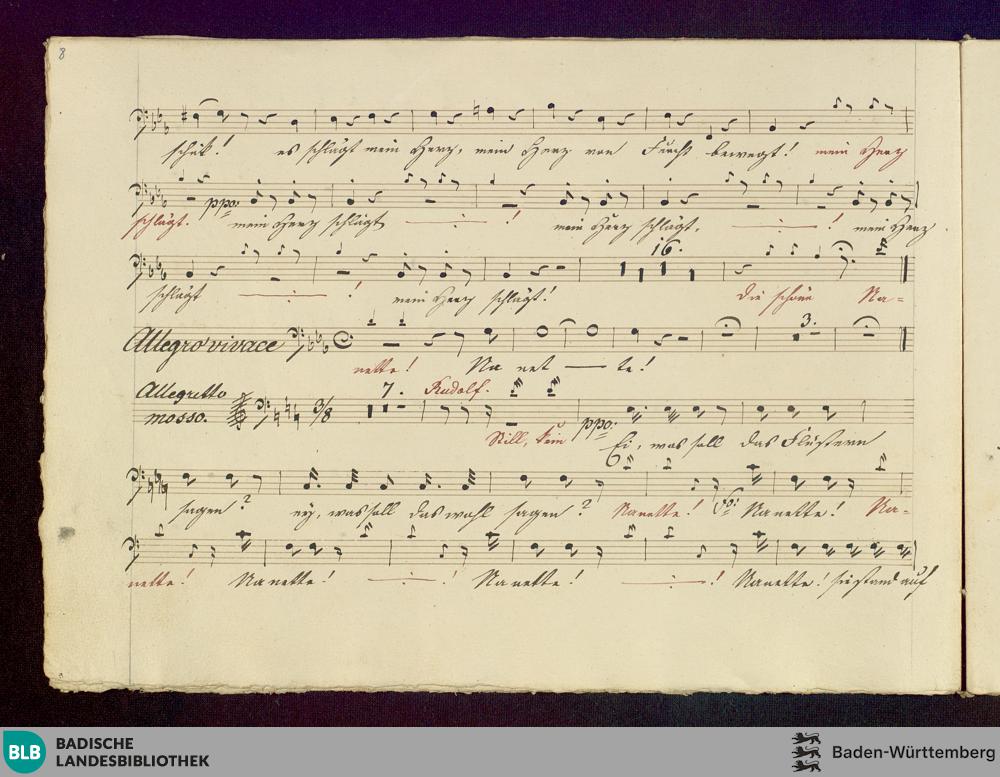 8
schick! es schlägt mein Herz, mein Herz von Furcht bewegt! mein Herz
ppo:
schlägt. mein Herz schlägt ! mein Herz schlägt, ! mein Herz
16.
schlägt ! mein Herz schlägt! die schöne Na=
Allegro vivace 3.
nette! Na net — te!
Allegretto 7. Rudolf.
mosso. 3/8 ppo:
Still, kein Ei, was soll das Flüstern
sagen? ey, was soll das wohl sagen? Nanette! Nanette! Na-
nette! Nanette! ! Nanette! ! Nanette! sie stand auf
BLB BADISCHE
LANDESBIBLIOTHEK
Baden-Württemberg